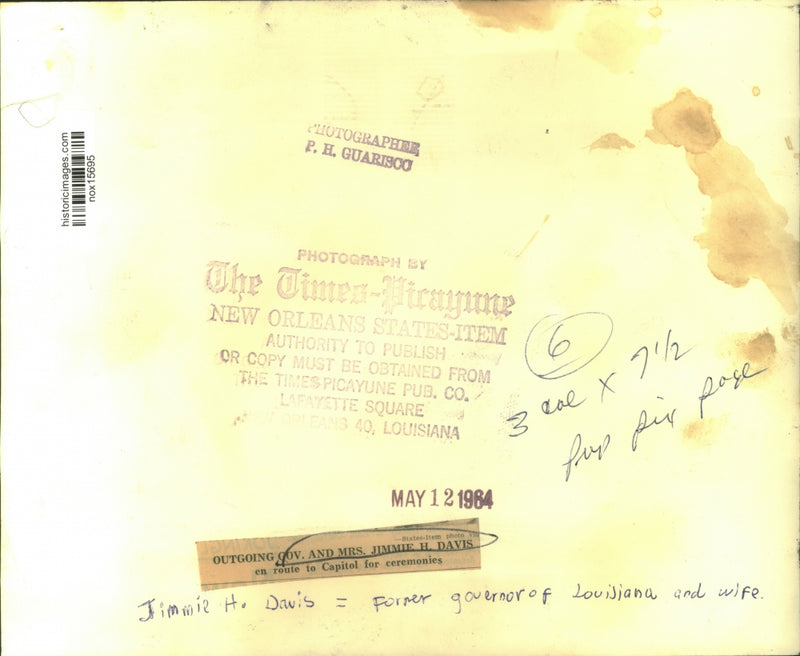 historicimages.com
nox15695
PHOTOGRAPHER
P. H. GUARISCO
PHOTOGRAPH BY
The Times-Picayune
NEW ORLEANS STATES-ITEM
AUTHORITY TO PUBLISH
OR COPY MUST BE OBTAINED FROM
THE TIMES-PICAYUNE PUB. CO.
LAFAYETTE SQUARE
NEW ORLEANS 40, LOUISIANA
6
3 col X 7 1/2
pix page
MAY 12 1964
—States-Item photo
OUTGOING GOV. AND MRS. JIMMIE H. DAVIS
en route to Capitol for ceremonies
Jimmie H. Davis = Former governor of Louisiana and wife.